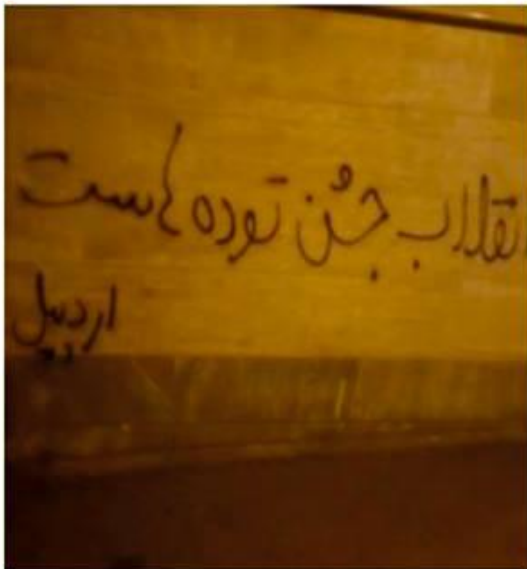 انقلاب جشن توده هاست
اردبیل